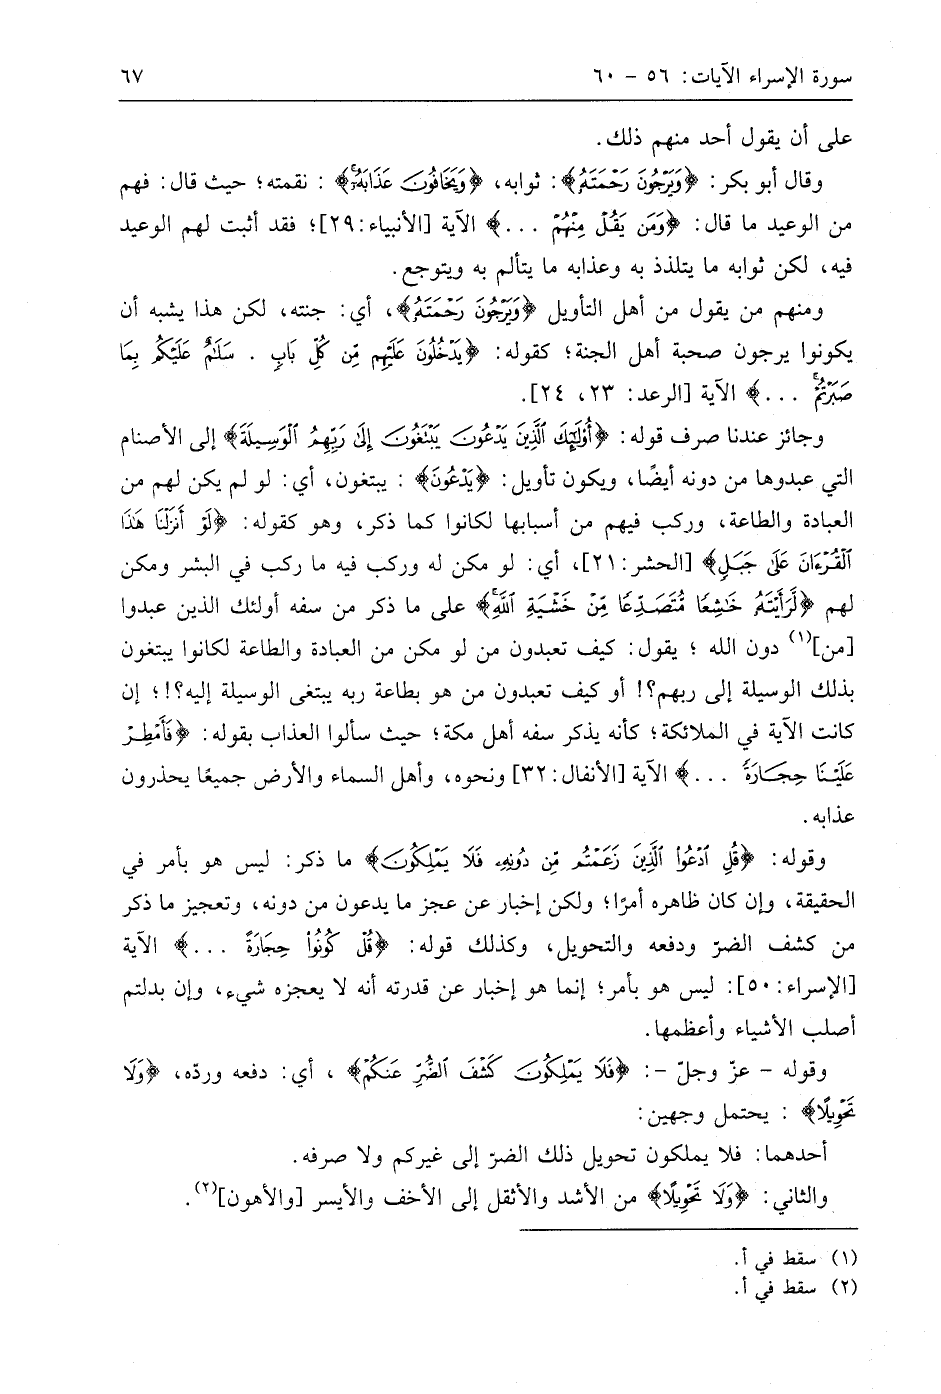 سورة الإسراء الآيات: ٥٦ – ٦٠ ٦٧
على أن يقول أحد منهم ذلك.
وقال أبو بكر: ﴿وَيَرْجُونَ رَحْمَتَهُ﴾: ثوابه، ﴿وَيَخَافُونَ عَذَابَهُۥٓ﴾ : نقمته؛ حيث قال: فهم
من الوعيد ما قال: ﴿وَمَن يَقُلْ مِنْهُمْ ...﴾ الآية [الأنبياء:٢٩]؛ فقد أثبت لهم الوعيد
فيه، لكن ثوابه ما يتلذذ به وعذابه ما يتألم به ويتوجع.
ومنهم من يقول من أهل التأويل ﴿وَيَرْجُونَ رَحْمَتَهُ﴾، أي: جنته، لكن هذا يشبه أن
يكونوا يرجون صحبة أهل الجنة؛ كقوله: ﴿يَدْخُلُونَ عَلَيْهِم مِّن كُلِّ بَابٍ . سَلَٰمٌ عَلَيْكُم بِمَا
صَبَرْتُمْۚ ...﴾ الآية [الرعد: ٢٣، ٢٤].
وجائز عندنا صرف قوله: ﴿أُوْلَٰٓئِكَ ٱلَّذِينَ يَدْعُونَ يَبْتَغُونَ إِلَىٰ رَبِّهِمُ ٱلْوَسِيلَةَ﴾ إلى الأصنام
التي عبدوها من دونه أيضًا، ويكون تأويل: ﴿يَدْعُونَ﴾ : يبتغون، أي: لو لم يكن لهم من
العبادة والطاعة، وركب فيهم من أسبابها لكانوا كما ذكر، وهو كقوله: ﴿لَوْ أَنزَلْنَا هَٰذَا
ٱلْقُرْءَانَ عَلَىٰ جَبَلٍ﴾ [الحشر:٢١]، أي: لو مكن له وركب فيه ما ركب في البشر ومكن
لهم ﴿لَّرَأَيْتَهُۥ خَٰشِعًا مُّتَصَدِّعًا مِّنْ خَشْيَةِ ٱللَّهِۚ﴾ على ما ذكر من سفه أولئك الذين عبدوا
[من]⁽١⁾ دون الله ؛ يقول: كيف تعبدون من لو مكن من العبادة والطاعة لكانوا يبتغون
بذلك الوسيلة إلى ربهم؟! أو كيف تعبدون من هو بطاعة ربه يبتغى الوسيلة إليه؟!؛ إن
كانت الآية في الملائكة؛ كأنه يذكر سفه أهل مكة؛ حيث سألوا العذاب بقوله: ﴿فَأَمْطِرْ
عَلَيْنَا حِجَارَةً ...﴾ الآية [الأنفال:٣٢] ونحوه، وأهل السماء والأرض جميعًا يحذرون
عذابه.
وقوله: ﴿قُلِ ٱدْعُوا۟ ٱلَّذِينَ زَعَمْتُم مِّن دُونِهِۦ فَلَا يَمْلِكُونَ﴾ ما ذكر: ليس هو بأمر في
الحقيقة، وإن كان ظاهره أمرًا؛ ولكن إخبار عن عجز ما يدعون من دونه، وتعجيز ما ذكر
من كشف الضرّ ودفعه والتحويل، وكذلك قوله: ﴿قُلْ كُونُوا۟ حِجَارَةً ...﴾ الآية
[الإسراء:٥٠]: ليس هو بأمر؛ إنما هو إخبار عن قدرته أنه لا يعجزه شيء، وإن بدلتم
أصلب الأشياء وأعظمها.
وقوله – عزّ وجلّ –: ﴿فَلَا يَمْلِكُونَ كَشْفَ ٱلضُّرِّ عَنكُمْ﴾ ، أي: دفعه وردّه، ﴿وَلَا
تَحْوِيلًا﴾ : يحتمل وجهين:
أحدهما: فلا يملكون تحويل ذلك الضرّ إلى غيركم ولا صرفه.
والثاني: ﴿وَلَا تَحْوِيلًا﴾ من الأشد والأثقل إلى الأخف والأيسر [والأهون]⁽٢⁾.
(١) سقط في أ.
(٢) سقط في أ.